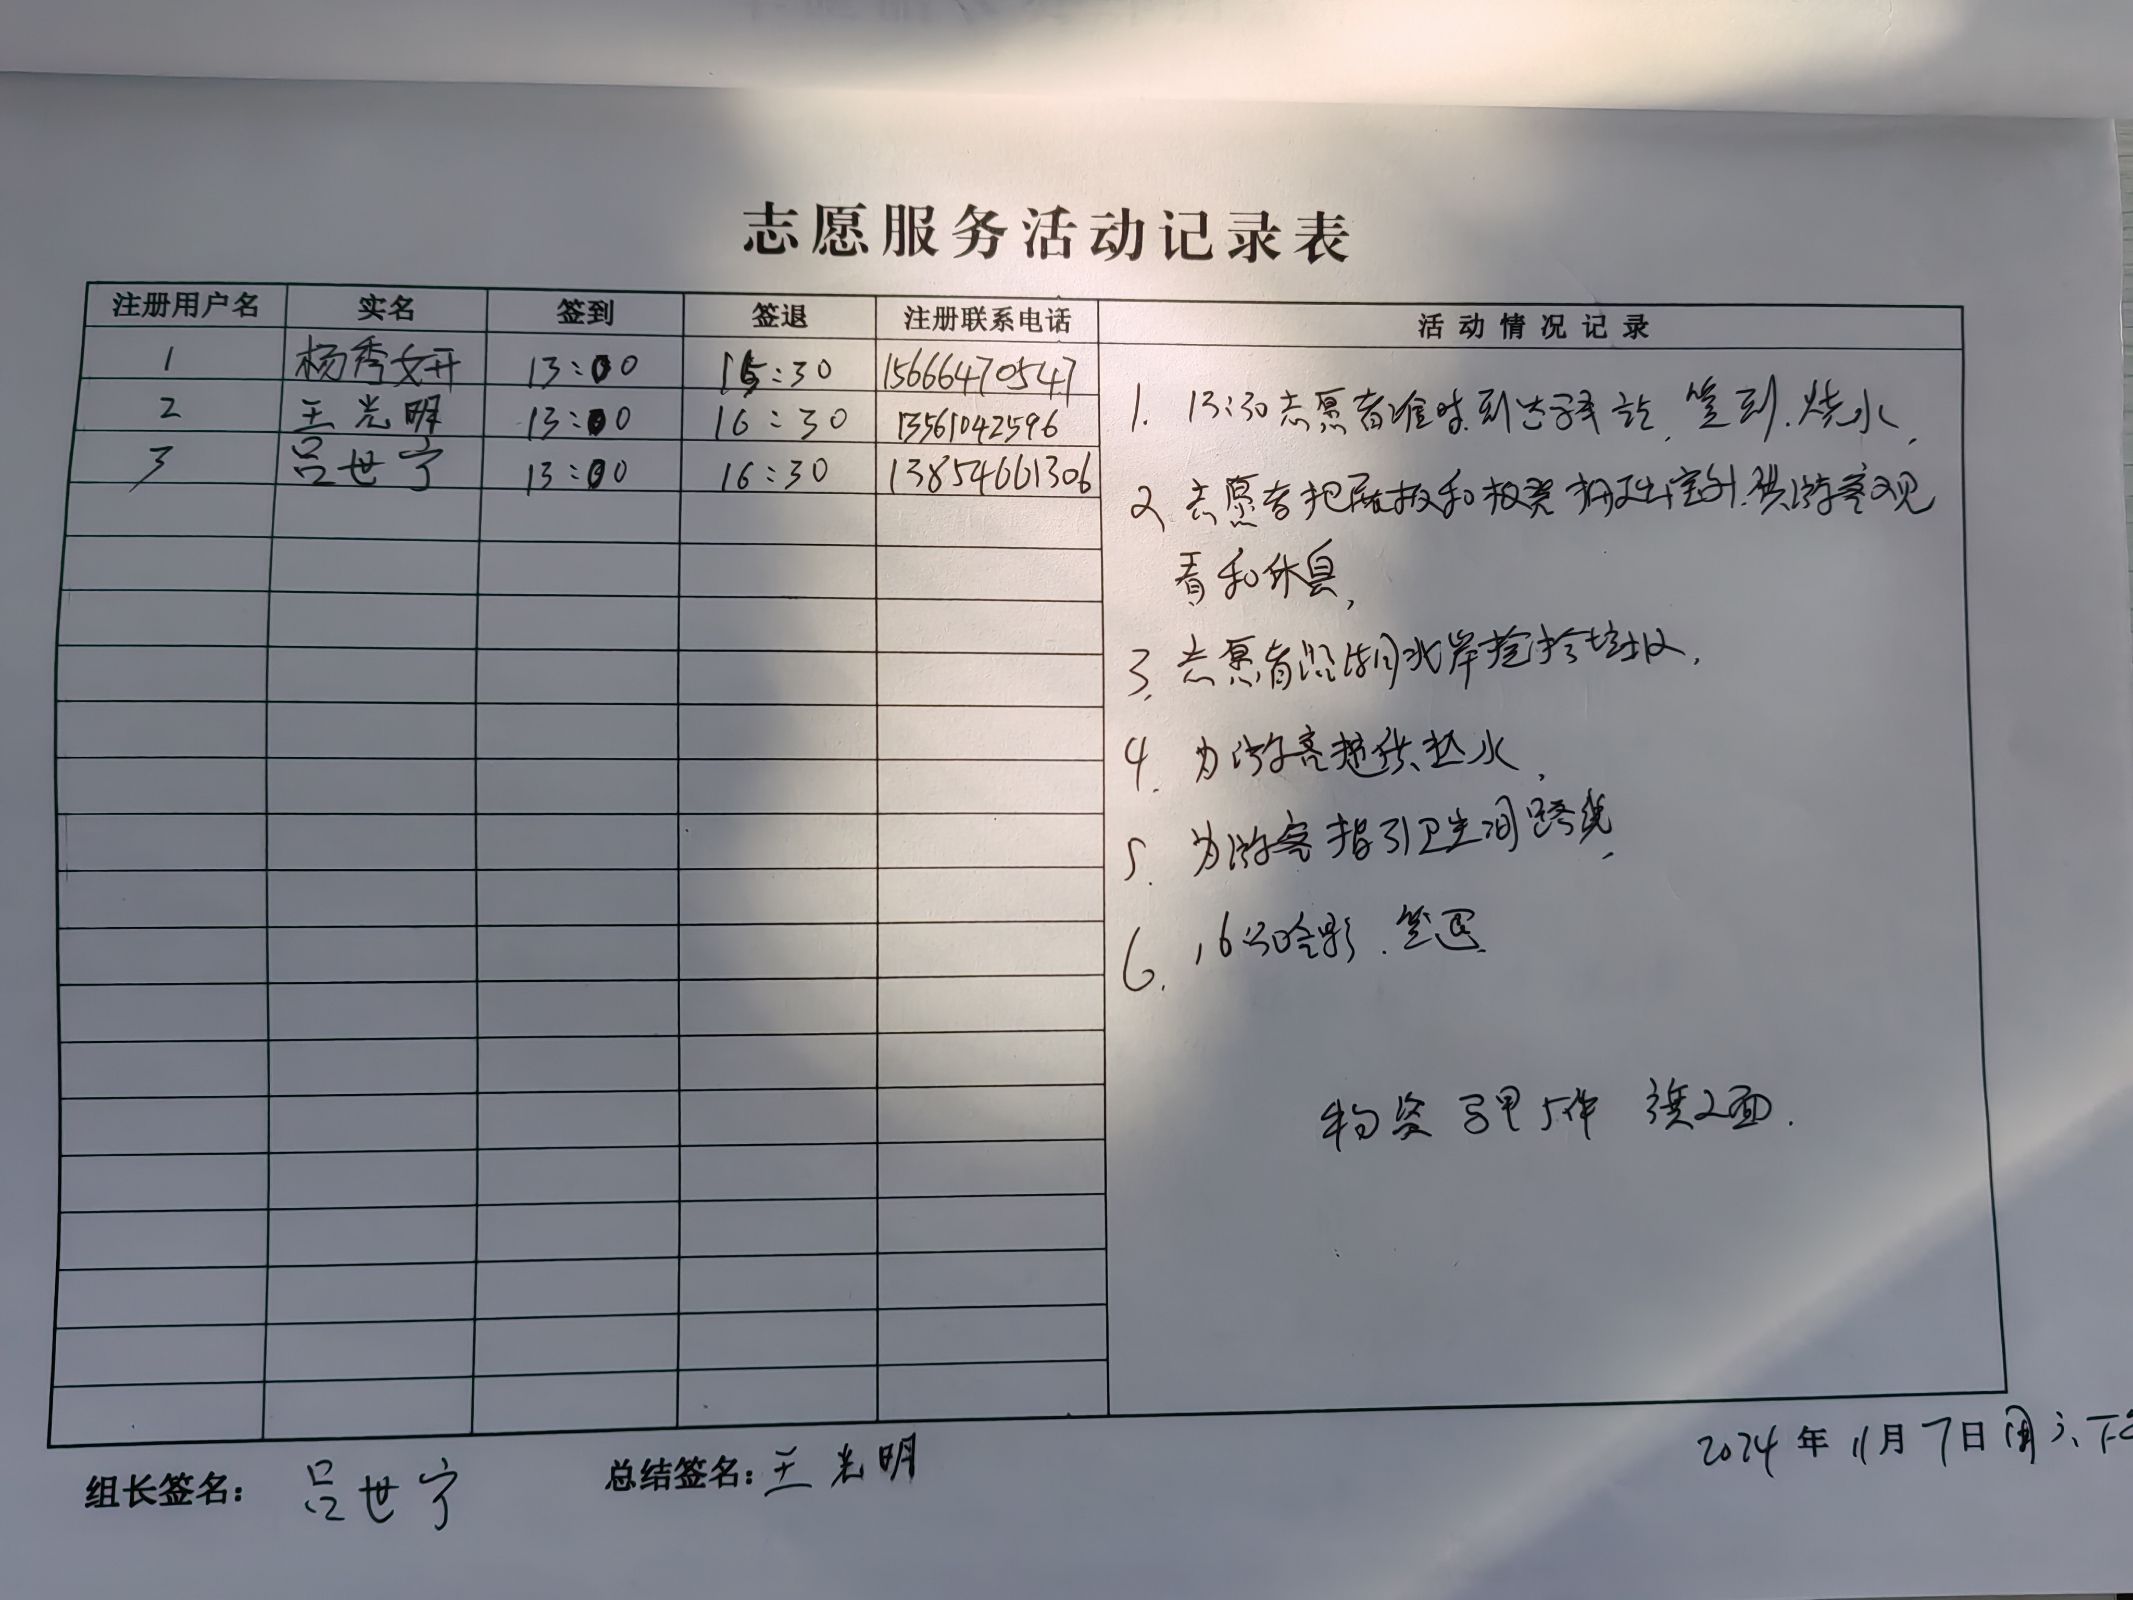 志愿服务活动记录表
注册用户名 实名 签到 签退 注册联系电话 活动情况记录
1 杨秀妍 13:00 16:30 15666470547
2 王光明 13:00 16:30 13561042596
3 吕世宁 13:00 16:30 13854661306
1. 13:30志愿者准时到达子我站,签到.烧水,
2 志愿者把展板和板凳搬出室外.供游客观
看和休息,
3. 志愿者沿湖北岸捡拾垃圾.
4. 为游客提供热水,
5. 为游客指引卫生间路线,
6. 16:30合影.签退
物资 马甲5件 旗2面.
组长签名: 吕世宁 总结签名: 王光明
2024年11月7日周 下